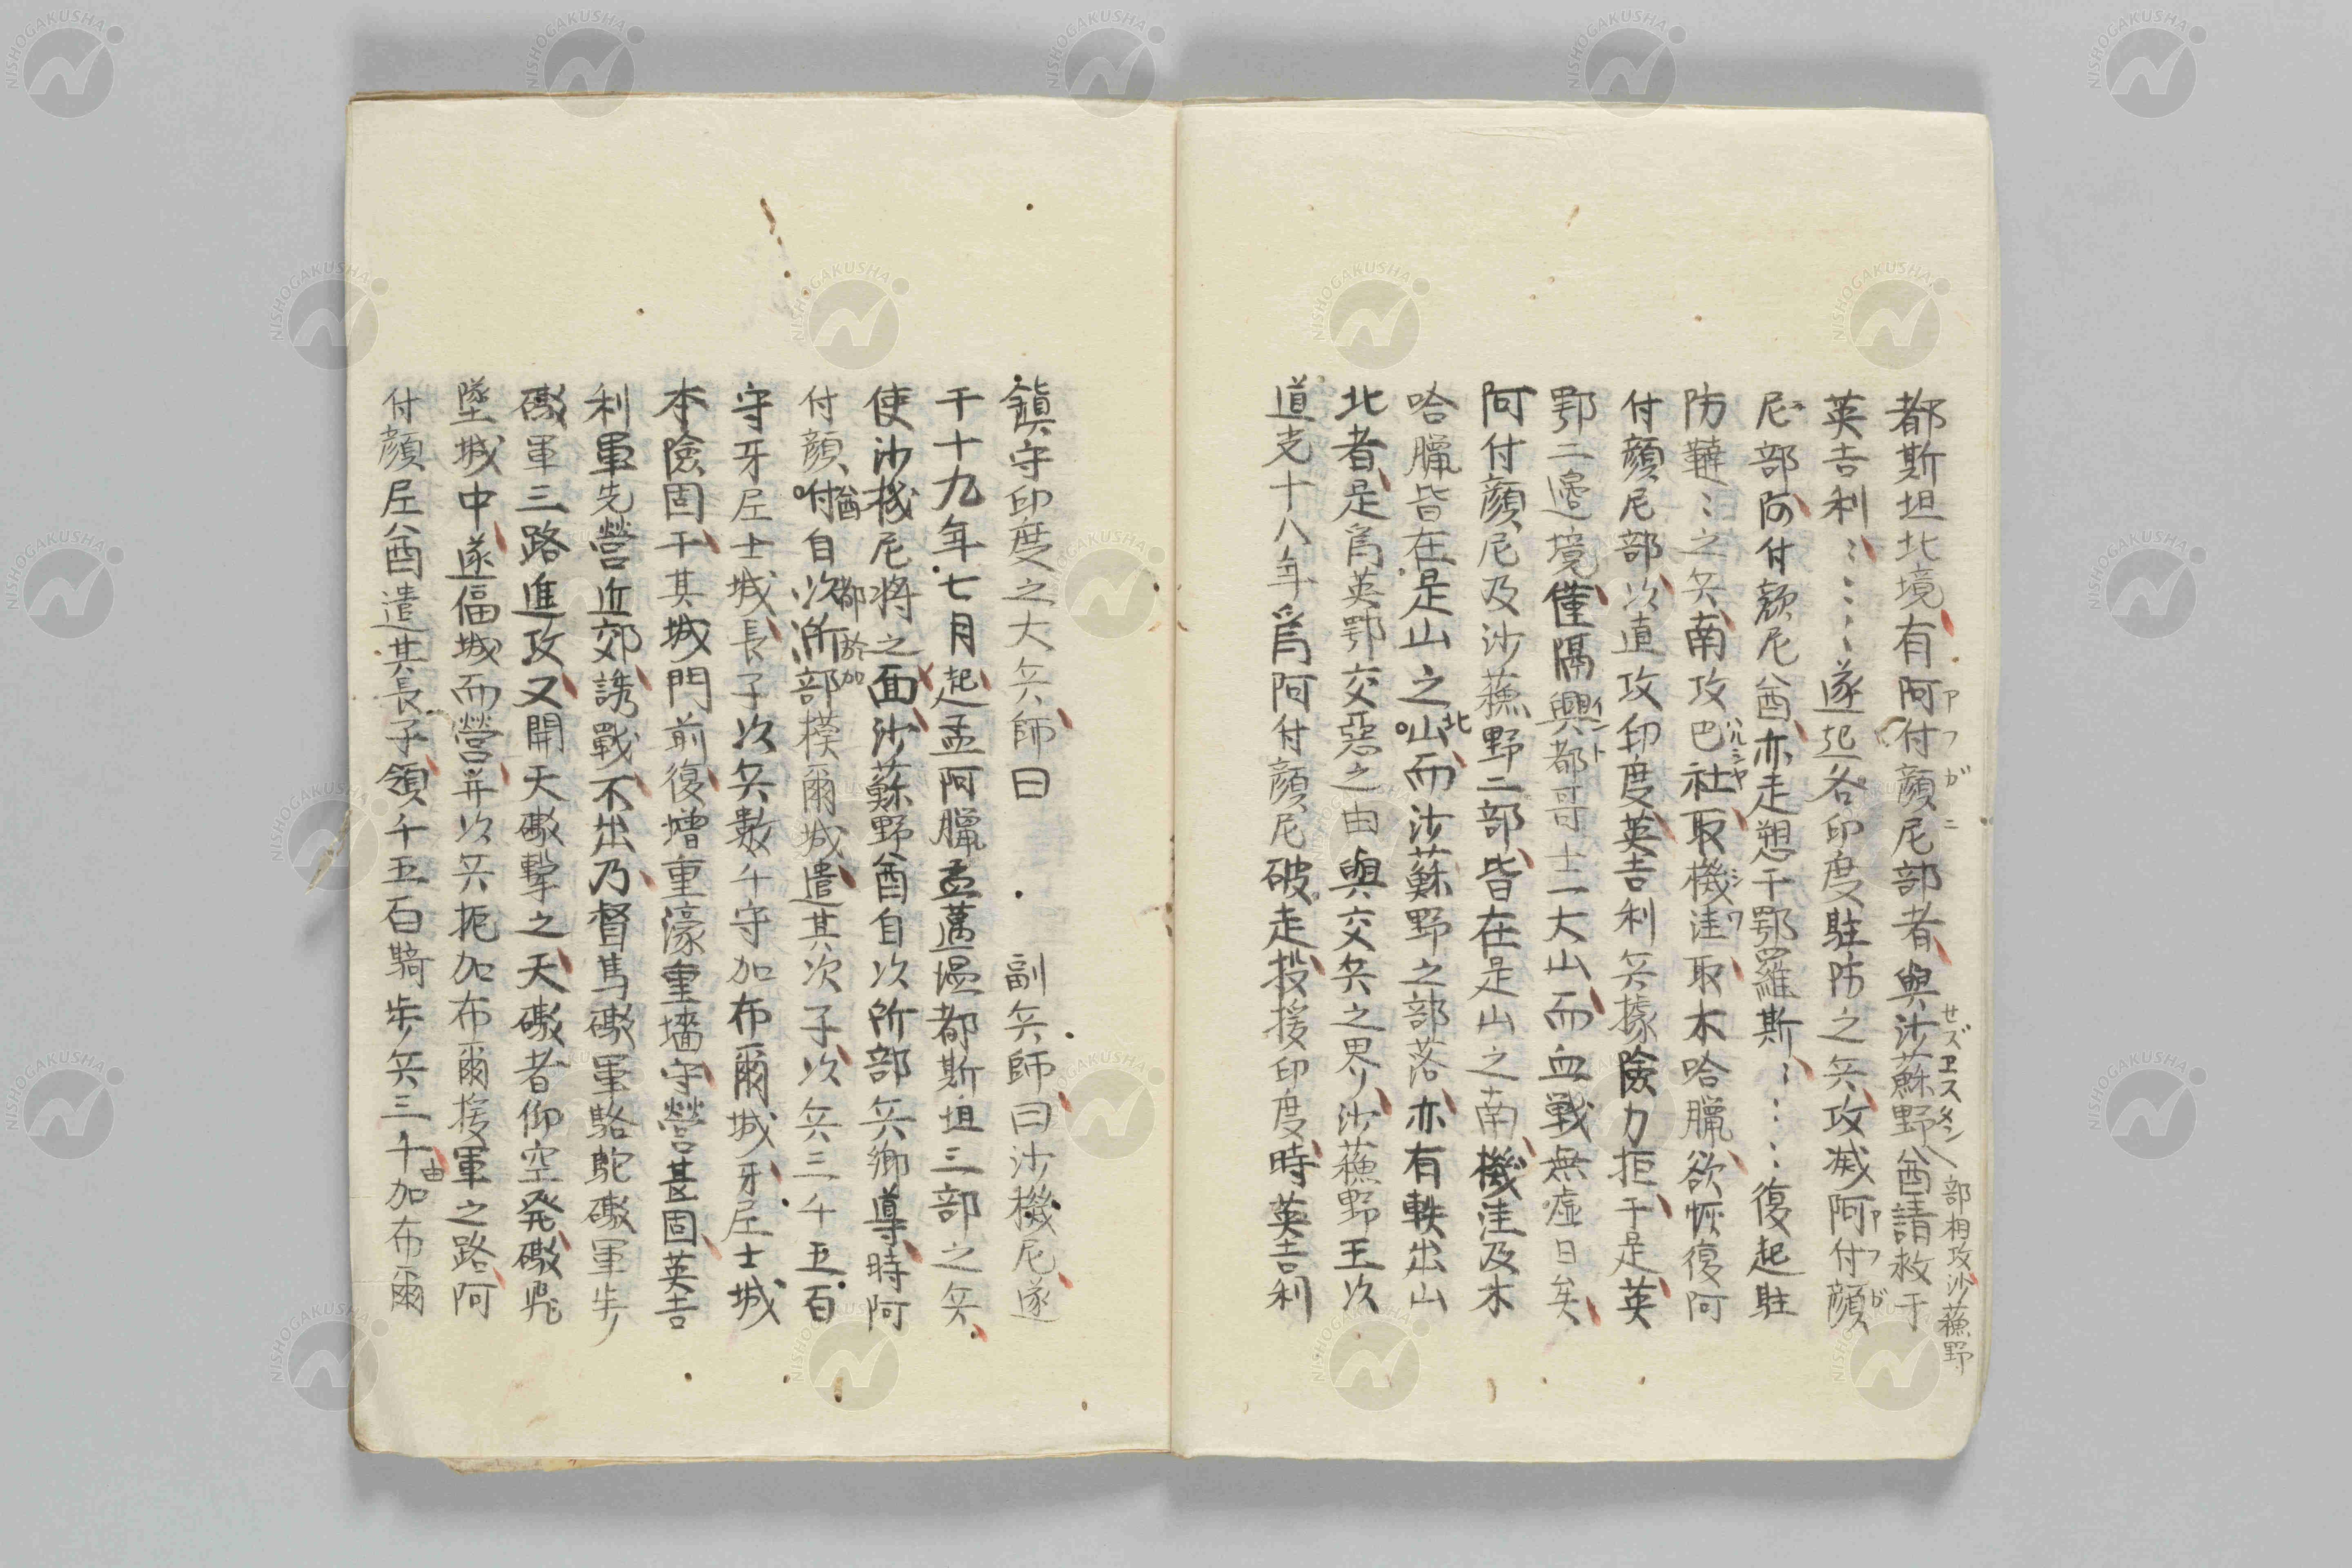 都斯坦北境有阿付顔尼部者與沙蘇野酋請救于
アフガニ
サズヱスタン
部相攻沙蘓野
英吉利〻〻〻遂起各印度駐防之兵攻滅阿付顔
アフガ
尼部阿付顔尼酋亦走愬于鄂羅斯〻〻〻復起駐
ニ
防韃〻之兵南攻巴社取機洼取木哈臘欲恢復阿
ハルシヤ
シワ
付顔尼部以直攻印度英吉利兵據險力拒于是英
鄂二邊境僅隔興都哥士一大山而血戦無虚日矣
イント
阿付顔尼及沙蘓野二部皆在是山之南機洼及木
哈臘皆在是山之山而沙蘇野之部落亦有軼出山
北
北者是爲英鄂交惡之由與交兵之界沙蘓野王次
道支十八年爲阿付顔尼破走投援印度時英吉利
鎮守印度之大兵師曰 副兵師曰沙機尼遂
于十九年七月起孟阿臘孟邁愠都斯坦三部之兵
使沙機尼將之面沙蘇野酋自次所部兵鄉導時阿
付顔付自次所部模爾城遣其次子次兵三千五百
酋
都於加
守牙尼士城長子次兵數千守加布爾城牙尼士城
本險固于其城門前復增重濠重墻守營甚固英吉
利軍先營近郊誘戰不出乃督馬礮軍駱駝礮軍步
礮軍三路進攻又開天礮擊之天礮者仰空発礮飛
墜城中遂偪城而營并次兵扼加布爾援軍之路阿
付顔尼酋遣其長子領千五百騎步兵三千加布爾
由